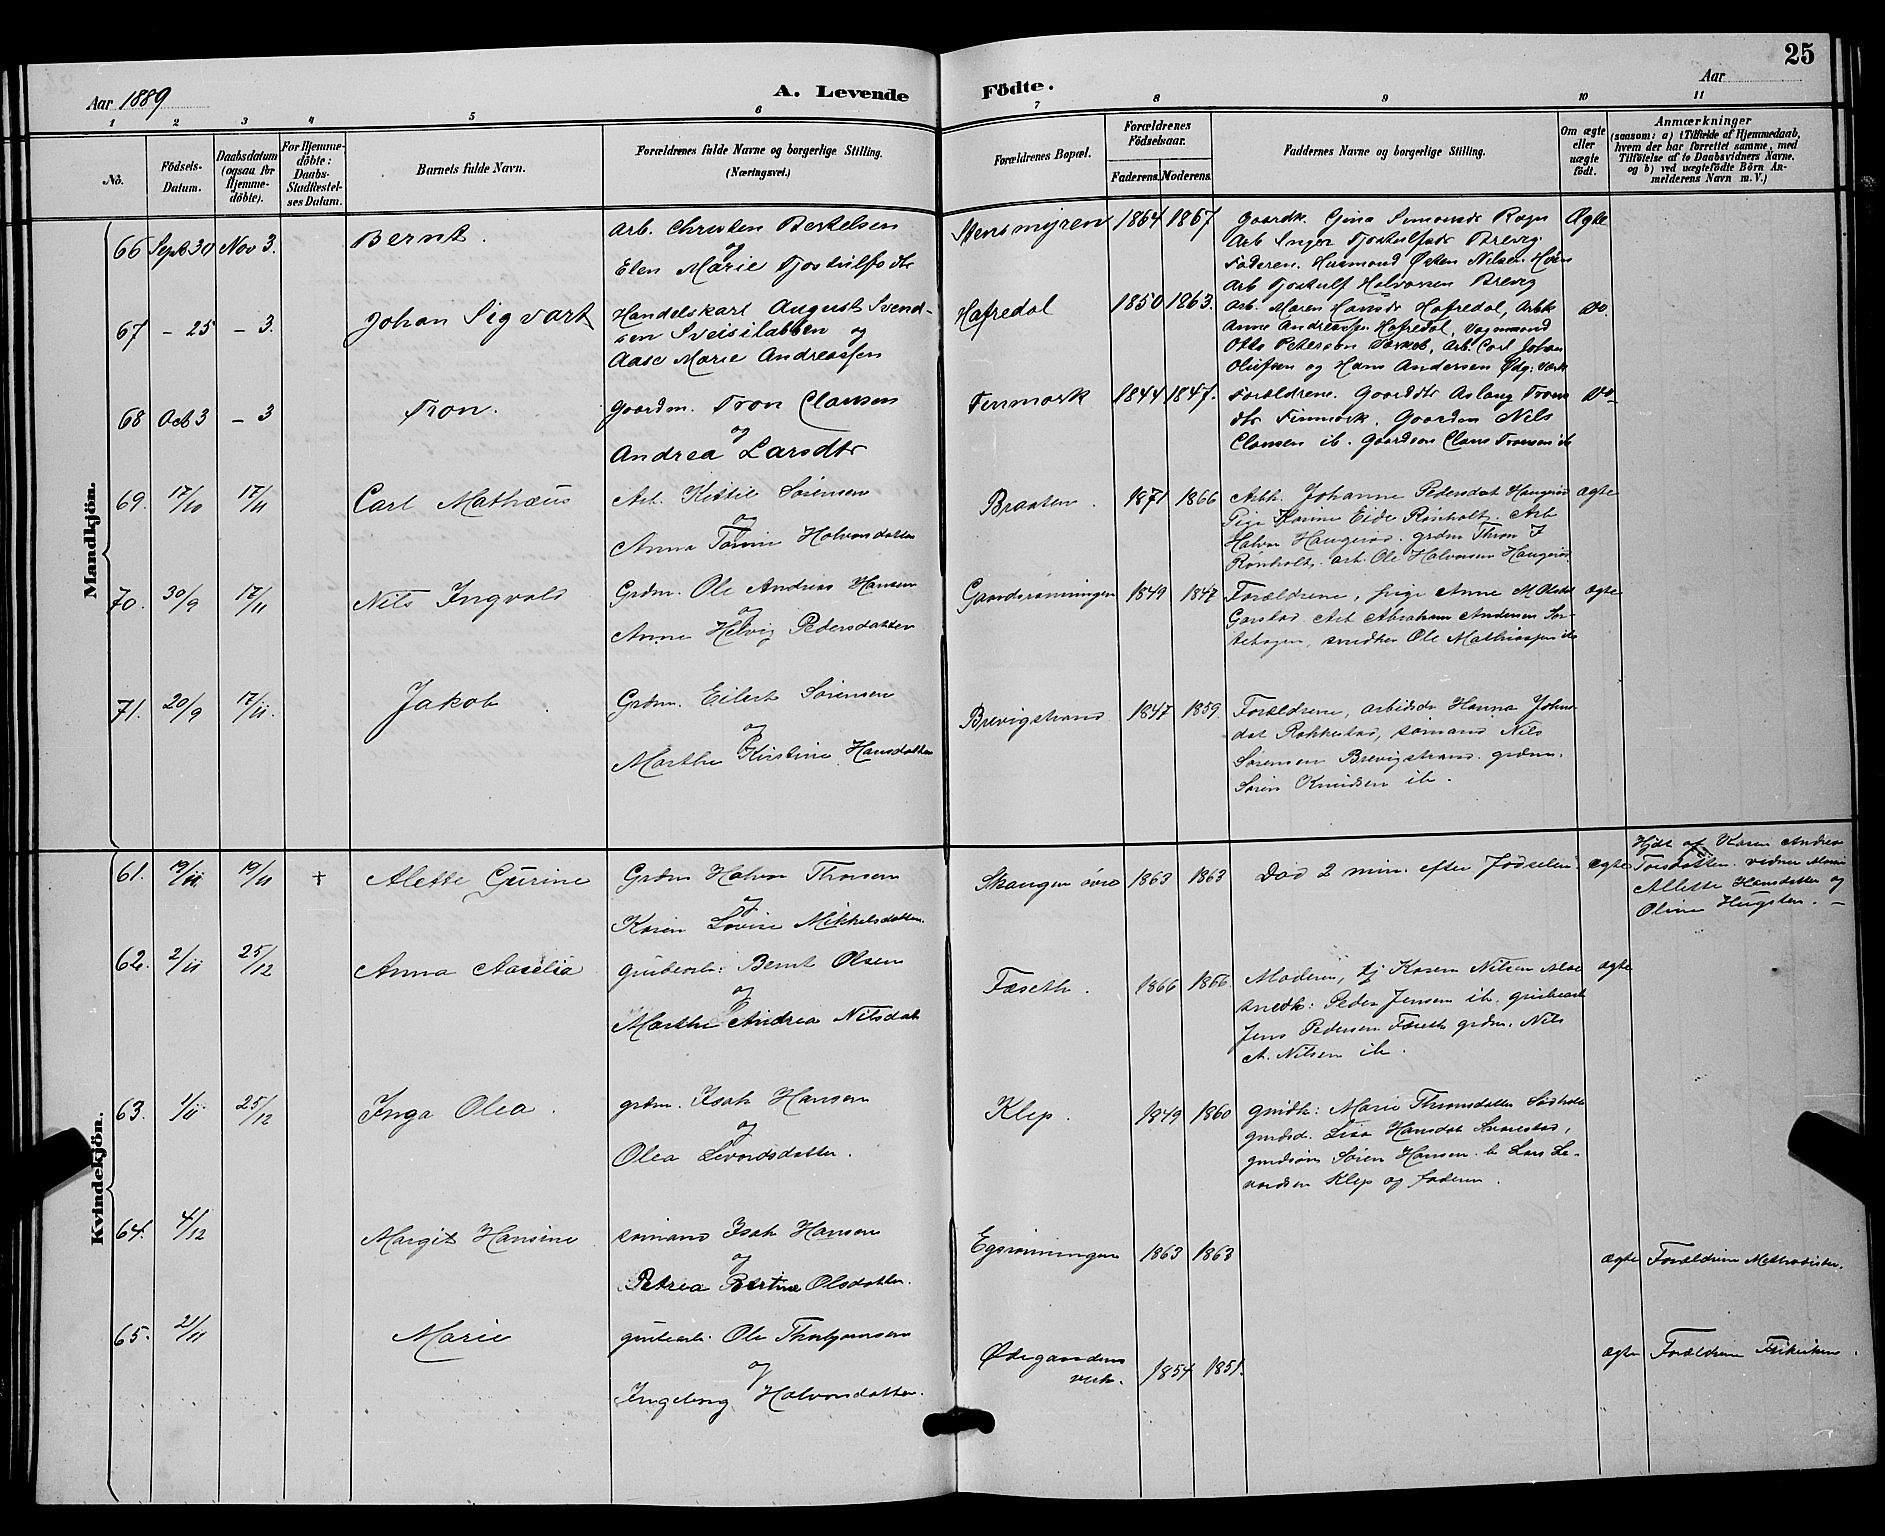 25
Aar 1889
A. Levende
Födte.
Aar
1 2 3 4 5 6 7 8 9 10 11
No.
Födsels-
Datum.
Daabsdatum
(ogsaa for
Hjemme-
döbte).
For Hjemme-
döbte:
Daabs-
Stadfæstel-
ses Datum.
Barnets fulde Navn.
Forældrenes fulde Navne og borgerlige Stilling.
(Næringsvei.)
Forældrenes Bopæl.
Forældrenes
Födselsaar.
Faderens. Moderens.
Faddernes Navne og borgerlige Stilling.
Om ægte
eller
uægte
födt.
Anmærkninger
(saasom: a) i Tilfælde af Hjemmedaab,
hvem der har forrettet samme, med
Tilföielse af to Daabsvidners Navne,
og b) ved uægtefödte Börn An-
melderens Navn m. V.)
Mandkjön.
66 Sept 30 Nov 3. Bernt. Arb. Christen Bertelsen
og
Elen Marie Tjostulfsdtr
Stensmyren 1864 1867 Ægte
Arb Inger Tjostulfsdr Brevig
Faderen. Husmand Østen Nilsen
Arb Tjostulf Halvorsen Brevig
67 - 25 - 3. Johan Sigvart Handelskarl August Svend-
sen Sveisilabben og
Aase Marie Andreassen
Hafredal 1850 1863. do.
Arb. Maren Hansdr Hafredal, Arbk
Anne Andreassen Hafredal, Vognmand
Otto Peterson, Arb. Carl Johan
Olufsen og Hans Andersen Ødg. Værk
68 Oct 3 - 3 Tron. Gaardm. Tron Clausen
og
Andrea Larsdtr
Finmark 1844 1847. do
Forældrene. Gaarddtr Aslaug Trons
dtr Finmark. Gaardm Nils
Clausen ib. Gaardsøn Claus Tronsen ib
69. 17/10 17/11 Carl Mathæus Arb. Kittil Sørensen
og
Anna Tomine Halvorsdatter
Braaten. 1871 1866 ægte
Arbk. Johanne Pedersdat Haugerød
Pige Karine Eide Rønholt. Arb
Halvor Haugerød. grdm Thron J
Rønholt. arb. Ole Halvorsen Haugerød
70. 30/9 17/11 Nils Ingvald Grdm. Ole Andreas Hansen
og
Anne Helvig Pedersdatter
Gaardsrønningen 1849 1847 ægte
Forældrene, pige Anne M Olsdat
Garstad Arb Abraham Andersen Sor-
tehagen, snedker Ole Mathiassen ib
71. 20/9 17/11. Jakob Grdm. Eilert Sørensen
og
Marthe Kirstine Hansdatter
Brevigstrand 1847 1859.
Forældrene, arbeidsdr Hanna Johns
dat Rakkestad, sømand Nils
Sørensen Brevigstrand. grdm.
Søren Knudsen ib.
Kvindekjön.
61. 19/11 19/11 † Alette Gurine Grdm Halvor Thronsen
og
Karen Lovise Mikkelsdatter.
Skaugen øvre 1863 1863 Død 2 min. efter Fødselen ægte
Hjdt af Karen Andrea
Torsdatter. vidner Maren
Allette Hansdatter og
Oline Hugsten. -
62. 2/11 25/12 Anna Aaselia grubearb: Bernt Olsen
og
Marthe Andrea Nilsdat
Fæseth. 1866 1866. ægte
Moderen, tj Karen Nilsen
snedk: Peder Jensen ib, grubearb
Jens Pedersen Fæseth grdm. Nils
A. Nilsen ib.
63. 1/11 25/12 Inga Olea. grdm. Isak Hansen
og
Olea Levordsdatter.
Klep. 1849 1860
gmdk: Marie Thronsdatter
gmdsd. Lisa Hansdat
gmdsøn Søren Hansen. b Lars Le-
vordsen Klep og faderen.
64. 4/12 Margit Hansine sømand Isak Hansen
og
Petrea Bertine Olsdatter.
Egsrønningen 1863 1863 ægte Forældrene Methodister.
65. 2/11 Marie grubearb. Ole Thorbjørnsen
og
Ingeborg Halvorsdatter.
Ødegaardens
verk. 1854 1851. ægte Forældrene Frikirken.